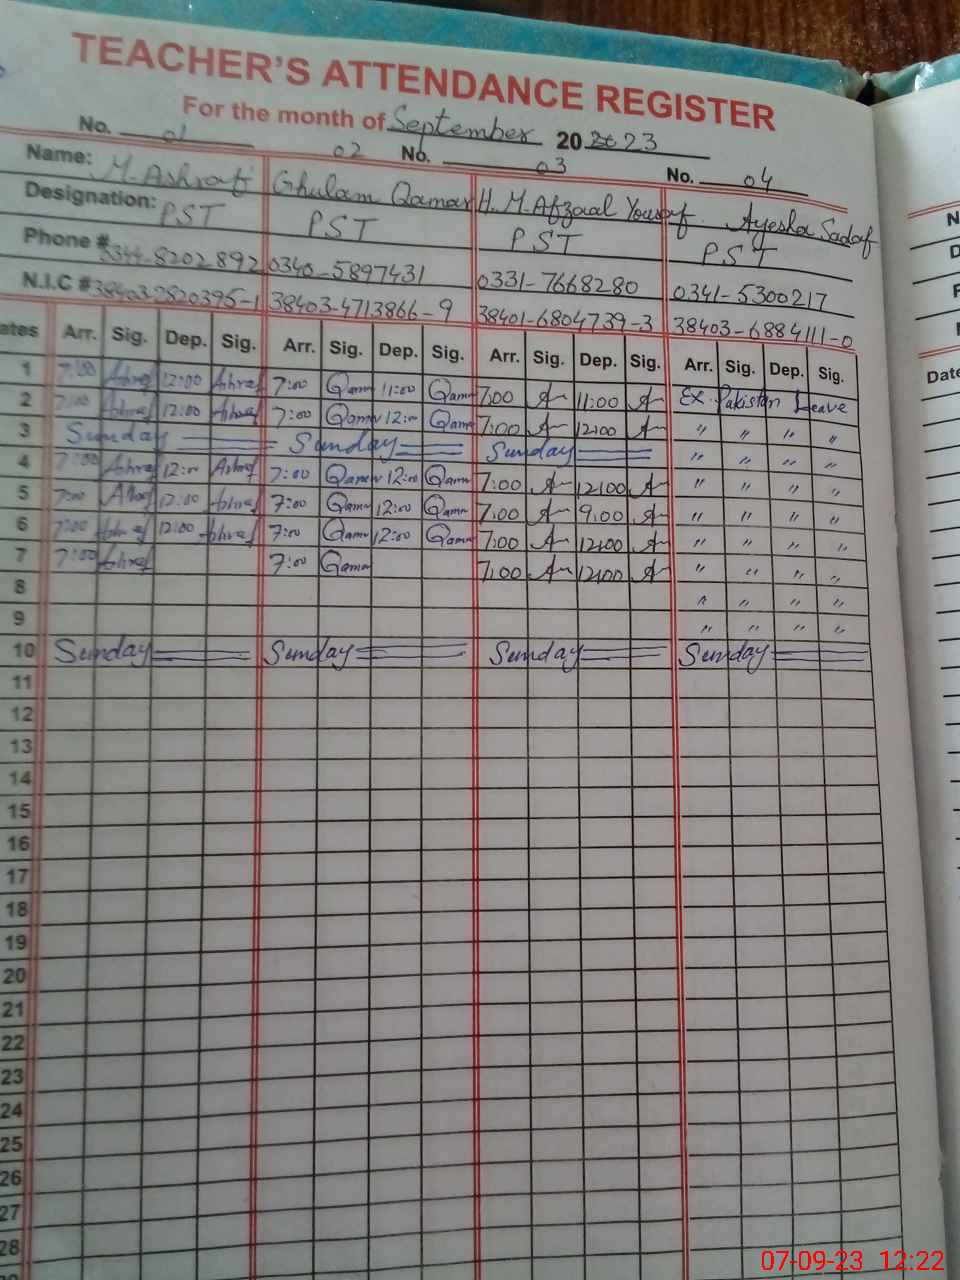 TEACHER'S ATTENDANCE REGISTER
For the month of September 2023
No. 01 02 No. 03 No. 04
Name: M. Ashraf Ghulam Qamar H. M. Afzaal Yousaf Ayesha Sadaf
Designation: PST PST PST PST
Phone # 0344-8202892 0340-5897431 0331-7668280 0341-5300217
N.I.C # 38403-2820395-1 38403-4713866-9 38401-6804739-3 38403-6884111-0
ates Arr. Sig. Dep. Sig. Arr. Sig. Dep. Sig. Arr. Sig. Dep. Sig. Arr. Sig. Dep. Sig.
1 7:00 Ashraf 12:00 Ashraf 7:00 Qamar 11:00 Qamar 7:00 A 11:00 A Ex. Pakistan Leave
2 7:00 Ashraf 12:00 Ashraf 7:00 Qamar 12:00 Qamar 7:00 A 12:00 A " " " "
3 Sunday Sunday Sunday " " " "
4 7:00 Ashraf 12:00 Ashraf 7:00 Qamar 12:00 Qamar 7:00 A 12:00 A " " " "
5 7:00 Ashraf 12:00 Ashraf 7:00 Qamar 12:00 Qamar 7:00 A 9:00 A " " " "
6 7:00 Ashraf 12:00 Ashraf 7:00 Qamar 12:00 Qamar 7:00 A 12:00 A " " " "
7 7:00 Ashraf 7:00 Qamar 7:00 A 12:00 A " " " "
8 " " " "
9 " " " "
10 Sunday Sunday Sunday Sunday
11
12
13
14
15
16
17
18
19
20
21
22
23
24
25
26
27
28
N
D
Date
07-09-23 12:22